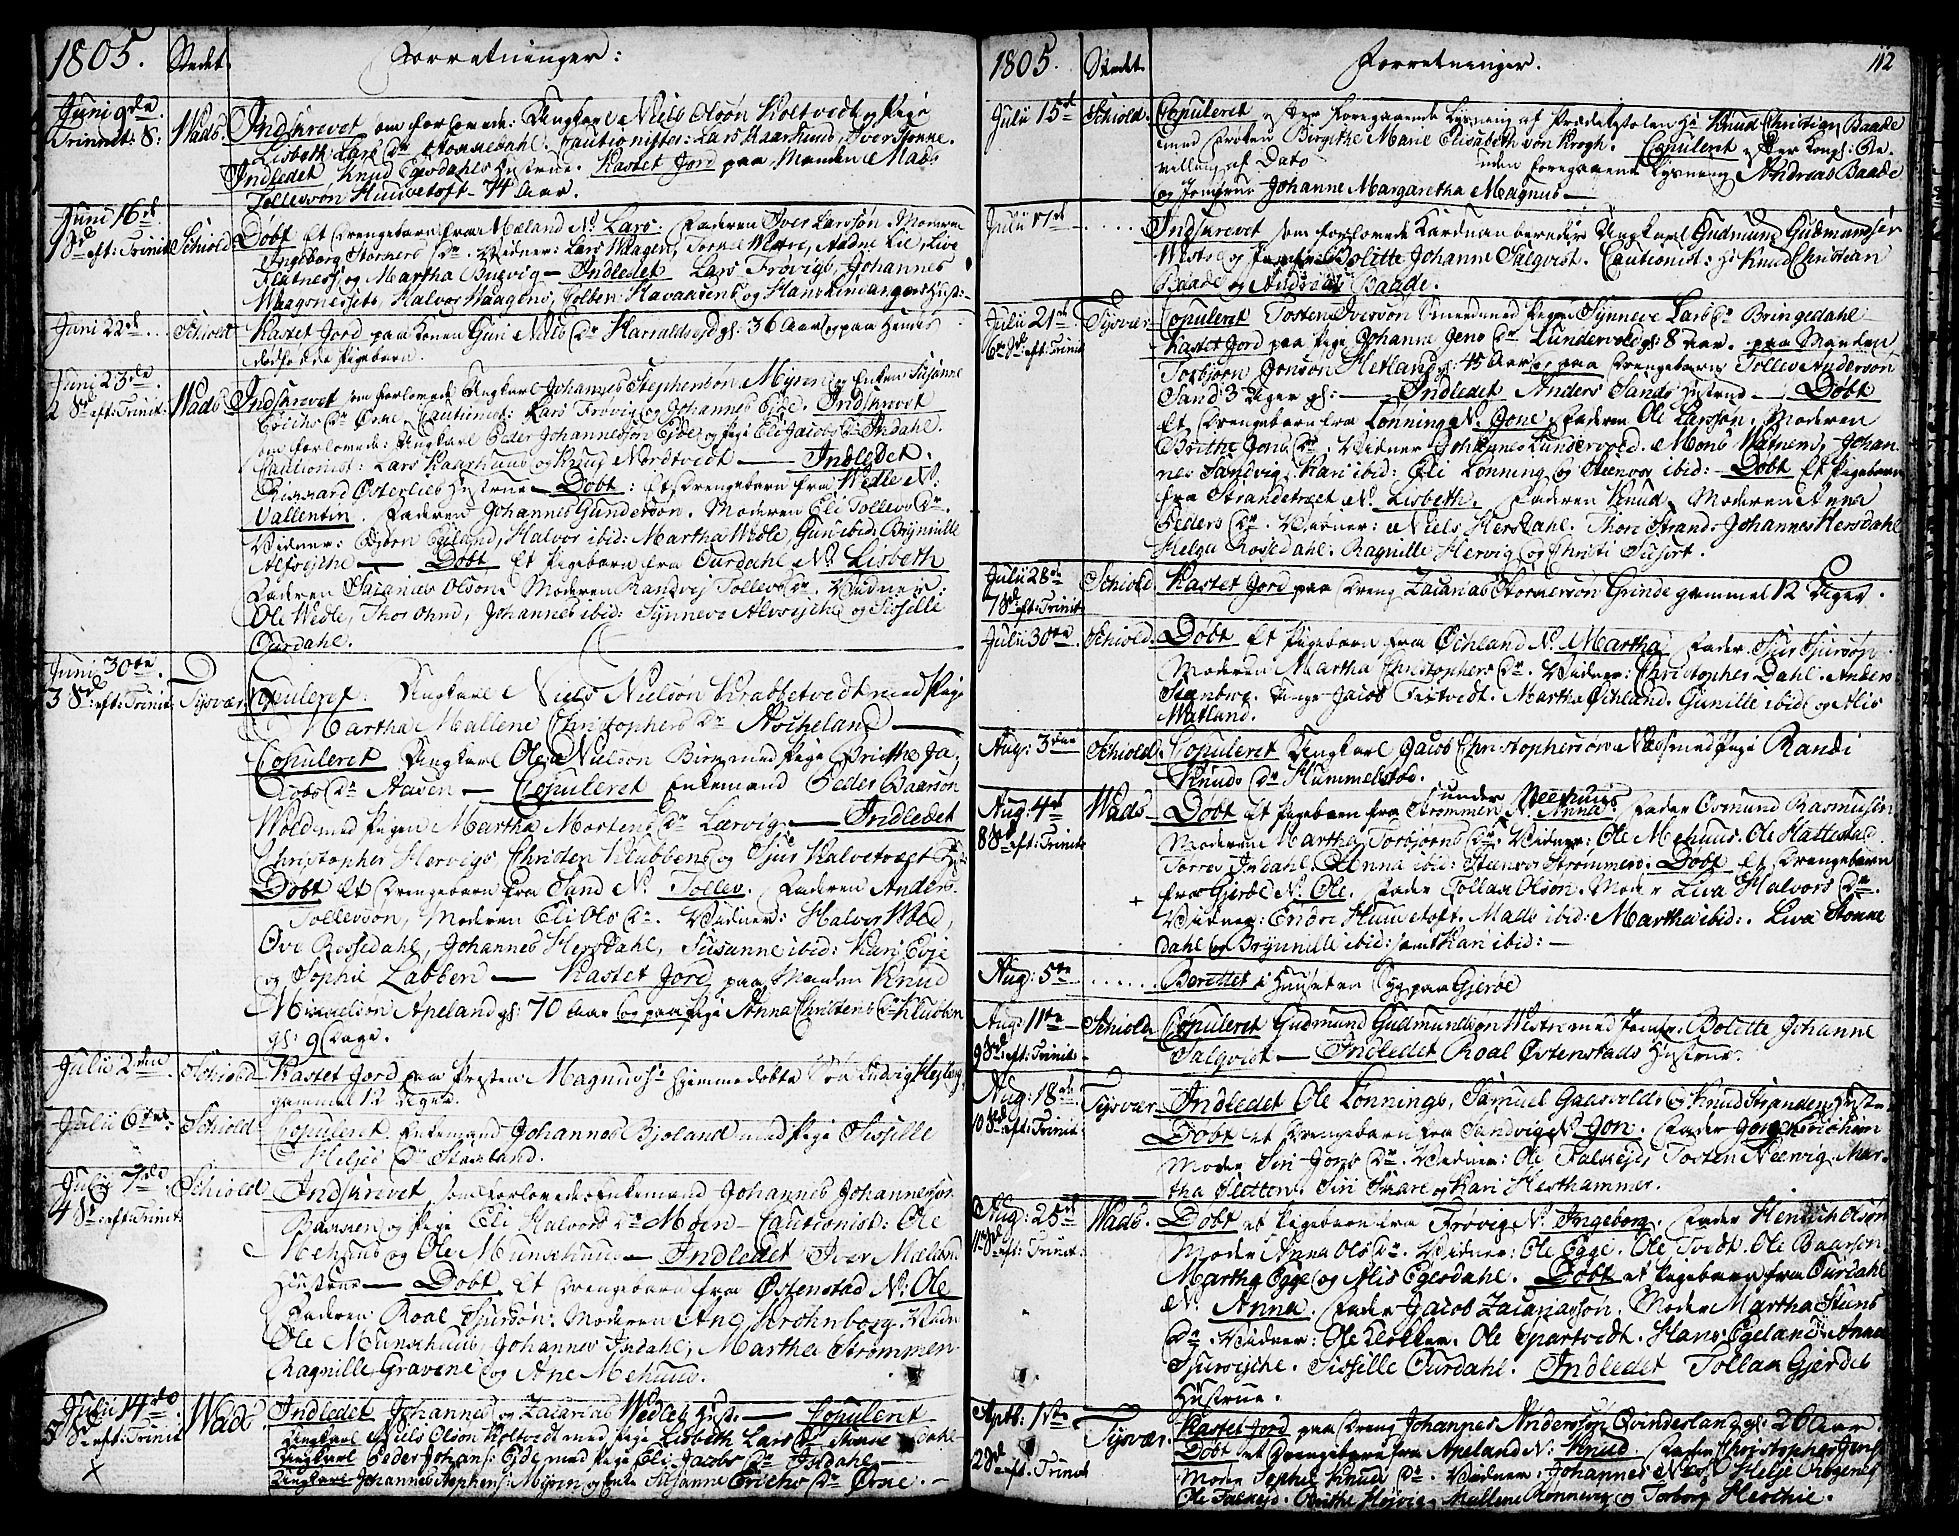 1805. Stedet. Forretninger:
Juni 9de Trinnit: 8: Wads. Indskrevet som forlovede: Ungkarl Niels Olsøn Holtvedt og Pige
Lisbeth Lars Dr Stonnedahl. Cautionister: Lars Kaarhuus, Iver Tonne.
Indledet Knud Egesdahls Hustrue. Kastet Jord paa Manden Mads
Tollevsøn Huuvetoft 74 Aar.
Juni 16de 1 S: eft: Trinit: Schiold Døbt Et Drengebarn fra Meland N: Lars. Faderen Iver Larssøn. Moderen
Ingeborg Størkers Dr. Vidner: Lars Waagen,
Flatness og Martha Bugvig — Indledet Lars Frøvigs, Johannes
Waagenessets, Halvor Waagens,
Juni 22de Schiold Kastet Jord paa Konen Guri Niels Dr Harraldseid gl: 36 Aar og paa hendes
dødfødde Pigebarn.
Juni 23de 2 S: eft: Trinit: Wads Indskrevet som forlovede: Ungkarl Johannes Stephensøn Myren og Enken Susanne
Erichs Dr Ørne. Cautionist: Lars Frøvig og Johannes Eide. Indskrevet
som forlovede: Ungkarl Peder Johannessøn Eide og Pige Eli Jacobs Dr Indahl.
Cautionist: Lars Kaarhuus og Knud Nordtvedt — Indledet.
Rissaard Østerlies Hustrue — Døbt: Et Drengebarn fra Wedle N:
Vallentin. Faderen Johannes Gundersøn. Moderen Eli Tollevs Dr.
Vidner: Bjørn Eigeland, Halvor ibid: Martha Wedle, Guri ibid: Brynnille
Alfseiche — Døbt Et Pigebarn fra Ourdahl N: Lisbeth
Faderen Sacarias Olson. Moderen Randvei Tollevs Dr. Vidner:
Ole Wedle, Johannes ibid: Synneve Alvseiche og Sissille
Ourdahl.
Juni 30te 3 S: eft: Trinit: Tysvær. Copuleret. Ungkarl Niels Nielsøn Krabbetvedt med Pige
Martha Mallene Christophers Dr Aocheland —
Copuleret Ungkarl Ole Nielsøn Birg med Pige Brithe Ja-
cobs Dr Aasen — Copuleret Enkemand Peder Baarsøn
Wold med Pigen Martha Mortens Dr Lærvig. — Indledet
Christopher Hervigs, Christen Klubbens og Sjur Kalvetræet H:
Døbt Et Drengebarn fra Sand N: Tollev. Faderen Anders
Tollevsøn, Moderen Eli Ols Dr. Vidner: Halvor Wold,
Ove Rossedahl, Johannes Hersdahl, Susanne ibid: Kari Eeie
og Sophie Labben — Kastet Jord paa Manden Knud
Mikkelsøn Apeland gl: 70 Aar og paa Pige Anna Christens Dr Klubben
gl: 9 Dage.
Julii 2den Schiold Kastet Jord paa Presten Magnus's hjemmedøbte Søn Ludvig
gammel 12 Uger.
Julii 6te Schiold Copuleret. Enkemand Johannes Bjoland med Pige Sissille
Helges Dr Stakland.
Julii 7de 4 S: eft: Trinit: Schiold Indskrevet som forlovede Enkemand Johannes Johannessøn
Bassen og Pige Eli Halvors Dr Moen — Cautionist: Ole
Mehuus og Ole Munchhuus. — Indledet Iver Mælands
Hustrue — Døbt Et Drengebarn fra Østenstad N: Ole
Faderen Roal Sjursøn. Moderen Ane Krohnborg. Vidner
Ole Munchhuus, Johannes Indahl, Martha Strømmen
Ragnille Gravene og Ane Mehuus.
Julii 14de 5 S: eft: Trinit: Wads. Indledet Johannes og Zacarias Wedles Hust: — Copuleret
Ungkarl Niels Olson Holtvedt med Pige Lisbeth Lars Dr Stonnedahl
Ungkarl Peder Johans: Eide med Pige Eli Jacobs Dr Indahl —
Ungkarl Johannes Stephens: Myren og Enke Susanne Erichs Dr Ørne. —
1805. Stedet. Forretninger. 112
Julii 15de Schiold. Copuleret efter foregaaende Lysning af Prædikestolen Hr Knud Christian Baade
med Frøken Birgithe Marie Elisabeth von Krogh. Copuleret efter Kongl: Be-
villing af Dato uden foregaaende Lysning Andreas Baade
og Jomfrue Johanne Margaretha Magnus —
Julii 17de ...... Indskrevet som forlovede Ungkarl Gudmund Gudmundsen
Westre og Jomfr: Bolitte Johanne Salqvist. Cautionist: Hr Knud Christian
Baade og Andreas Baade.
Julii 21de 6te S: eft: Trinit Tysvær Copuleret Tosten Iversøn med Pigen Synneve Lars Dr Bringedahl
Kastet Jord paa Pige Johanne Jens Dr Lundervold gl: 8 Aar. paa Manden
Torbjørn Jonson Hetland gl: 45 Aar og paa Drengebarn Tollev Andersøn
Sand 3 Uger gl: — Indledet Anders Sands Hustrue — Døbt
Et Drengebarn fra Lønning N: Jone. Faderen Ole Larssøn. Moderen
Brithe Jons Dr. Vidner Johannes Lundervold. Mons Watnem, Johan-
nes Sandvig. Kari ibid: Eli Lønning og Steenor ibid: — Døbt Et Pigebarn
fra Strandetræet N: Lisbeth. Faderen Knud. Moderen Anna
Peders Dr. Vidner: Niels Hersdahl. Thore Strand. Johannes Hersdahl
Helga Rossedahl. Ragnille Hervig og Christi
Julii 28de 7 S: eft: Trinit Schiold. Kastet Jord paa Dreng Zacarias Størkersøn Grinde gammel 12 Uger.
Julii 30te Schiold. Døbt Et Pigebarn fra Øchland N: Martha. Fader Sjur Sjursøn.
Moderen Martha Christophers Dr. Vidner: Christopher Dahl. Anders
Steenberg. Jacob Martha Øchland. Gunille ibid: og Alis
Watland.
Aug: 3die Schiold. Copuleret Ungkarl Jacob Christophersøn Næs med Pige Randi
Knuds Dr Hummelstøe.
Aug: 4de 8 S: eft: Trinit Wads Døbt et Pigebarn fra Strømmen under Meehuus N: Anna. Fader Osmund Rasmusøn
Moderen Martha Torbjørns Dr. Vidner: Ole Mehuus. Ole Hattestad.
Torres Indahl. Anna ibid: Steenor Strømmen. Døbt Et Drengebarn
fra Gjerde N: Ole. Fader Tollak Olson. Moder Liva Halvors Dr.
Vidner: Endre Huuvetoft. Mads ibid: Martha ibid: Liva Stonne-
dahl og Brynnille ibid: samt Kari ibid: —
Aug: 5te ...... Berettet i Huuset en Syg paa Gjerde
Aug: 11te 9 S: eft: Trinit Schiold. Copuleret Gudmund Gudmundsøn Westre med Jomfr: Bolette Johanne
Salqvist — Indledet Roal Østenstads Hustrue.
Aug: 18de 10 S: eft: Trinit: Tysvær Indledet Ole Lønnings, Samuel Gaasvolds og Knud Strandens Hust:
Døbt et Drengebarn fra Sandvig N: Jon. Fader Jørgen
Moder Siri Jons Dr. Vidner: Ole Falkeid, Tosten Neervig. Mar-
tha Sletten. Siri Skaare og Kari Hesthammer.
Aug: 25de 11 S: eft: Trinit: Wads. Døbt et Pigebarn fra Frøvig N: Ingeborg. Fader Henrich Olsøn
Moder Anna Ols Dr. Vidner: Ole Egge. Ole Tvedt. Ole Baarsøn
Martha Egge og Alis Egesdahl. Døbt et Pigebarn fra Ourdahl
N: Anna. Fader Jacob Zacariassøn. Moder Martha
Dr. Vidner: Ole Klokker. Ole Spartvedt. Hans Egeland. Anna
Sissille Ourdahl. Indledet Tollak Gjerdes
Hustrue.
Septb. 1ste 12 S: eft: Trinit Tysvær. Kastet Jord paa Dreng Johannes Andersøn Qvindesland gl: 26 Aar
Døbt et Drengebarn fra Apeland N: Knud. Fader Christopher Jens:
Moder Sophie Knuds Dr. Vidner: Johannes Næs. Helge
Ole Falkeid. Brithe Høivig. Mallene Rønnevig og Torborg Heschie.